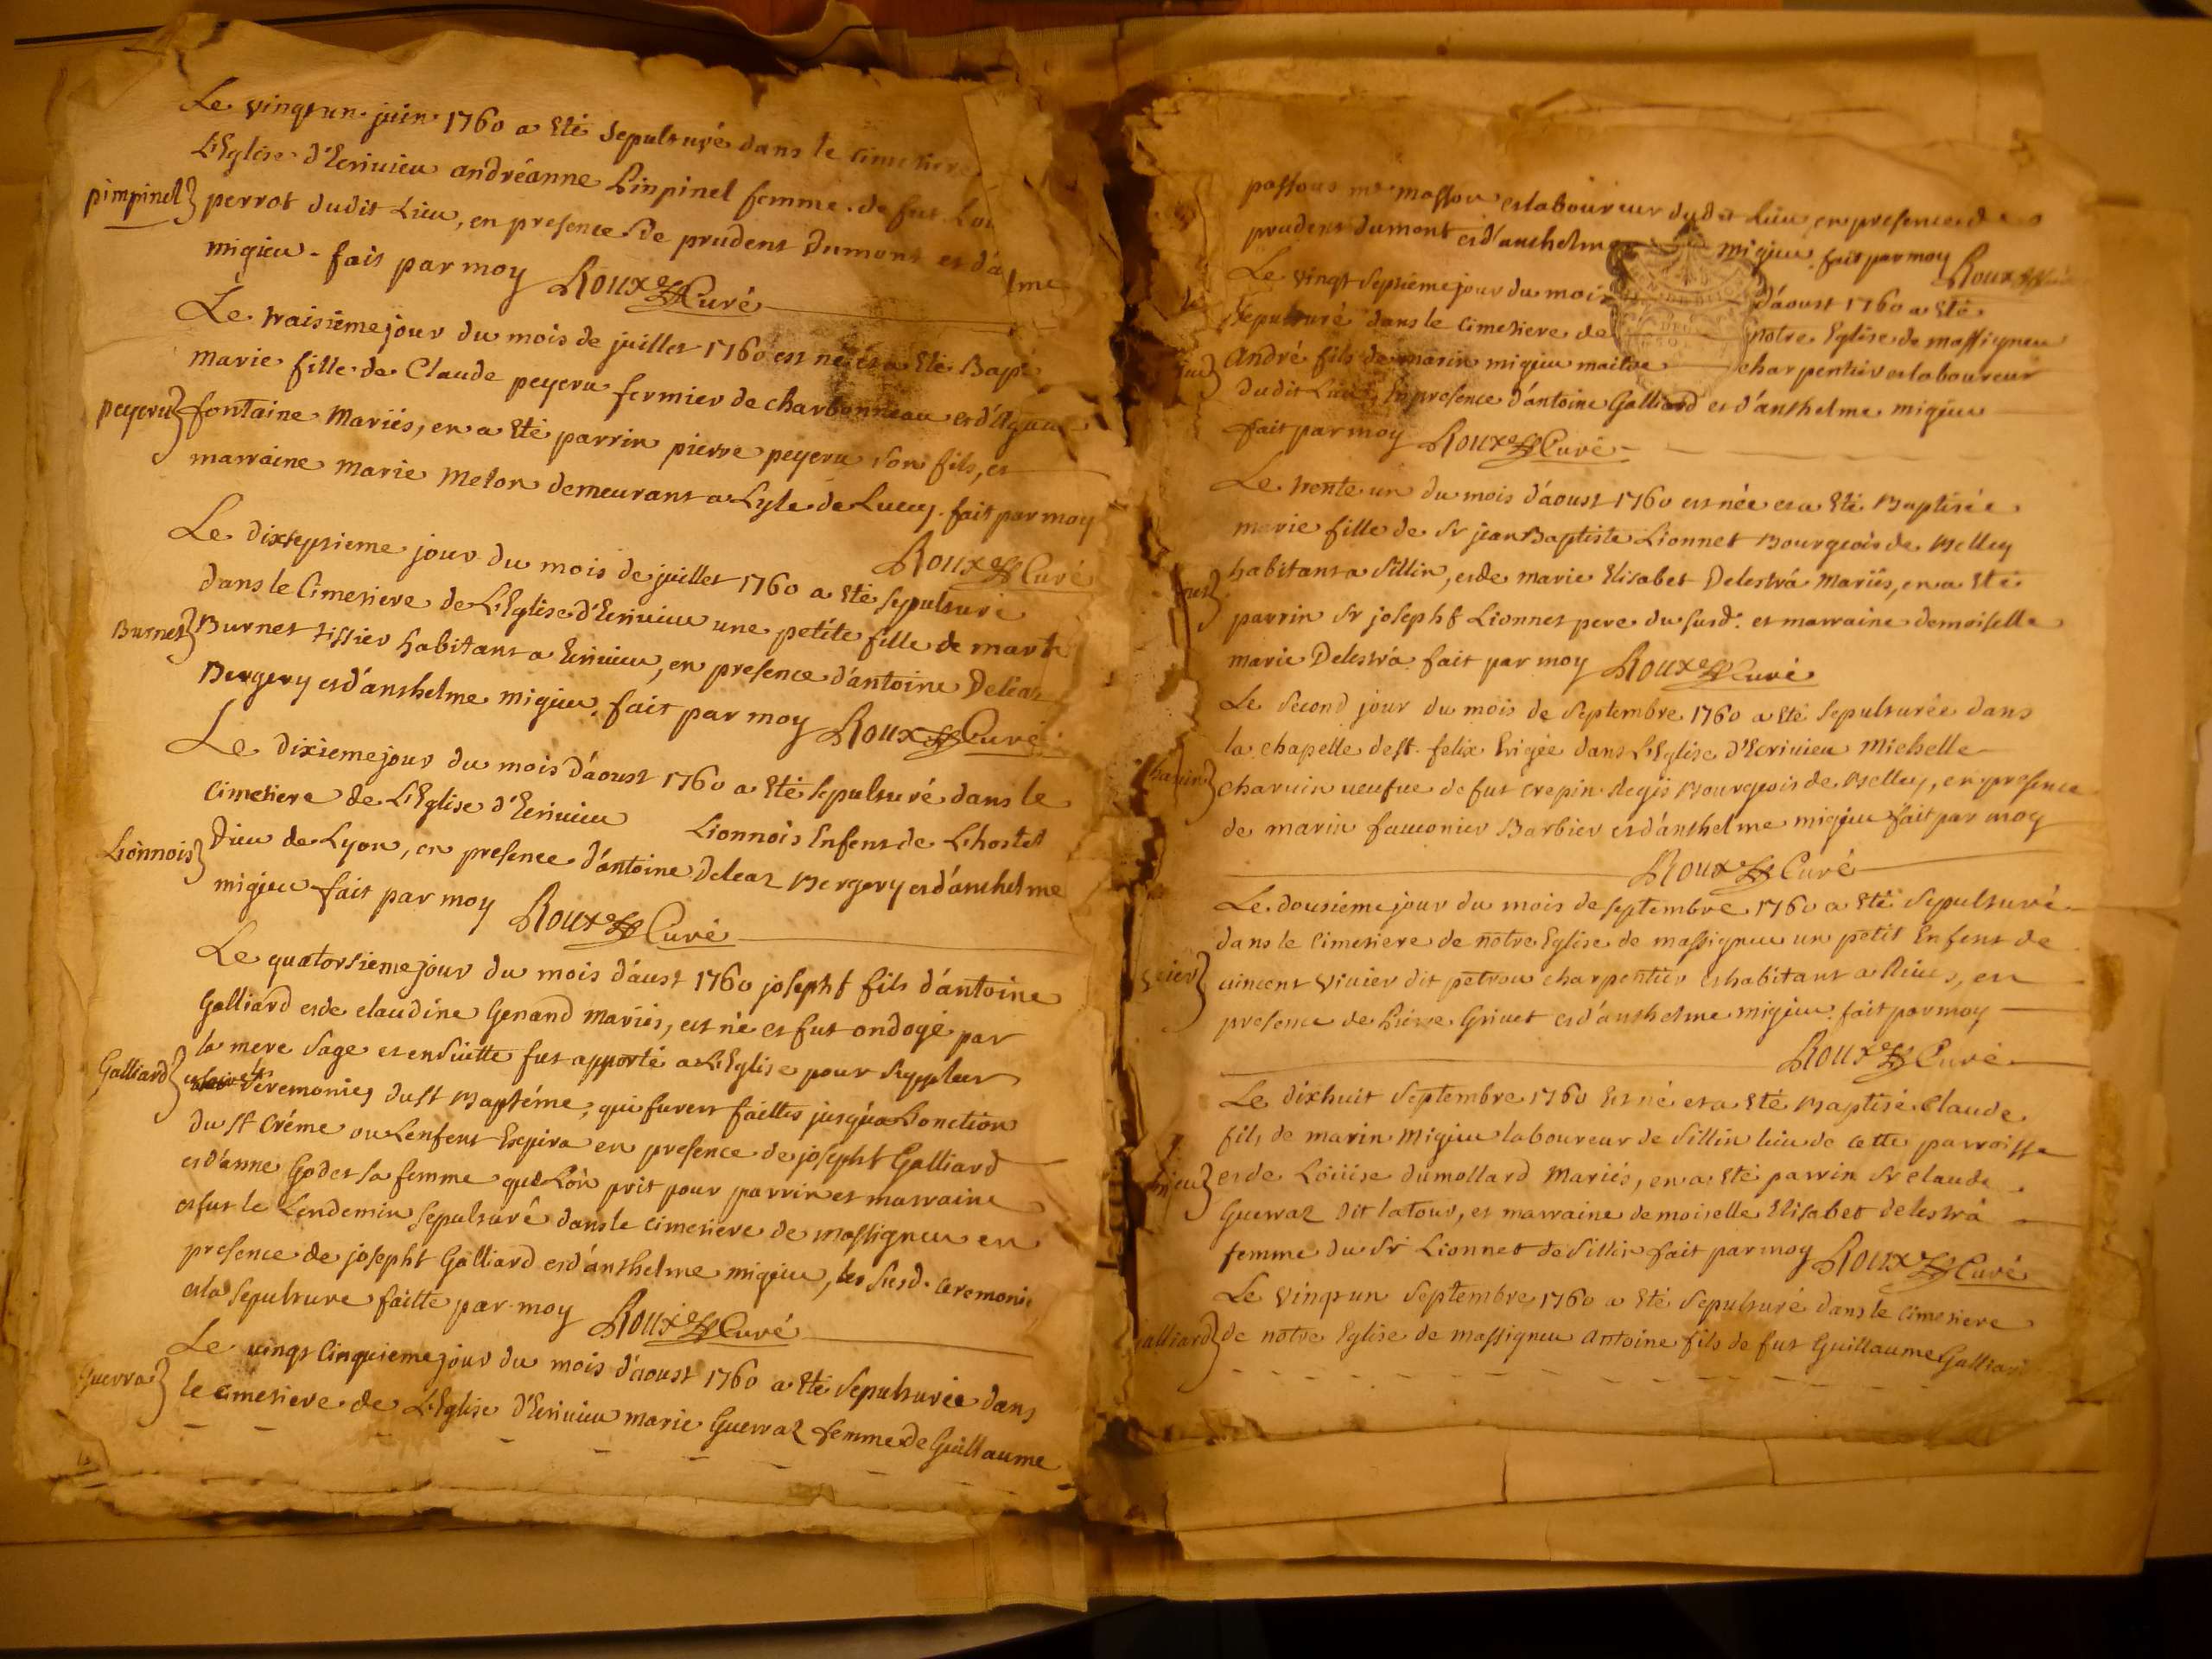 Le vingt un juin 1760 a Eté Sepulturé dans le cimetiere
L'Eglise d'Ecrivieu andréanne Pinpinel femme de fut
pimpinel perrot dudit Lieu, en presence de prudent Dumont et d'a lme
migieu. fait par moy Roux Curé
Le traisieme jour du mois de juillet 1760 est née et a Eté Bapt
marie fille de Claude peyeru fermier de charbonneau et d'
peyeru fontaine Mariés, en a Eté parrin pierre peyeru son fils, et
marraine marie melon demeurant a Lyle de Lucey. fait par moy
Roux Curé
Le dixseptieme jour du mois de juillet 1760 a Eté sepulturé
dans le Cimetiere de L'Eglise d'Ecrivieu une petite fille de
Burnet Burnet tissier habitant a Ecrivieu, en presence d'antoine Deleaz
Bergery et d'anthelme migieu. fait par moy Roux Curé
Le dixieme jour du mois d'aoust 1760 a Eté sepulturé dans le
cimetiere de L'Eglise d'Ecrivieu Lionnois Enfent de L'hostel
Lionnois Dieu de Lyon, en presence d'antoine Deleaz Bergery et d'anthelme
migieu fait par moy Roux Curé
Le quatorsieme jour du mois d'aust 1760 josepht fils d'antoine
Galliard et de claudine Genand mariés, est né et fut ondoyé par
la mere sage et ensuitte fut apporté a L'Eglise pour suppleer
Galliard Seremonies du st Baptéme, qui furent faittes jusqu'a Lonction
du st Créme ou Lenfent Expira en presence de josepht Galliard
et d'anne Godet sa femme que Lon prit pour parrin et marraine
et fut le Lendemin sepulturé dans le cimetiere de massigneu en
presence de josepht Galliard et d'anthelme migieu, les susd. ceremonie
et la sepulture faitte par moy Roux Curé
Le vingt Cinquieme jour du mois d'aoust 1760 a Eté sepulturée dans
Guerraz le cimetiere de L'Eglise d'Ecrivieu marie Guerraz femme de Guillaume
passous me massou et laboureur dudit Lieu, en presence de
prudent dumont et d'anthelme migieu. fait par moy Roux
Le vingt septiéme jour du mois d'aoust 1760 a Eté
sepulturé dans le cimetiere de notre Eglise de massigneu
André fils de marin migieu maitre charpentier et laboureur
dudit Lieu. En presence d'antoine Galliard et d'anthelme migieu
fait par moy Roux Curé
Le trente un du mois d'aoust 1760 est née et a Eté Baptisée
marie fille de Sr jean Baptiste Lionnet Bourgeois de Belley
habitant a Sillin, et de marie Elisabet Delestrá Mariés, en a Eté
parrin Sr josepht Lionnet pere du susd. et marraine demoiselle
marie Delestrá. fait par moy Roux Curé
Le Second jour du mois de Septembre 1760 a Eté Sepulturée dans
la chapelle de st. felix Erigée dans L'Eglise d'Ecrivieu Michelle
charvin veufue de fut crepin Regis Bourgeois de Belley, en presence
de marin fauconier Barbier et d'anthelme migieu fait par moy
Roux Curé
Le dousieme jour du mois de septembre 1760 a Eté sepulturé
dans le Cimetiere de notre Eglise de massigneu un petit Enfent de
vincent vivier dit petrou charpentier et habitant a Rives, en
presence de Pierre Grivet et d'anthelme migieu. fait par moy
Roux Curé
Le dixhuit Septembre 1760 Est né et a Eté Baptisé Claude
fils de marin Migieu laboureur de Sillin lieu de cette parroisse
et de Loüise dumollard Mariés, en a Eté parrin Sr claude
Guerraz dit latour, et marraine demoiselle Elisabet delestrá
femme du Sr Lionnet de Sillin fait par moy Roux Curé
Le vingt un Septembre 1760 a Eté Sepulturé dans le cimetiere
alliard de notre Eglise de massigneu Antoine fils de fut Guillaume Galliard